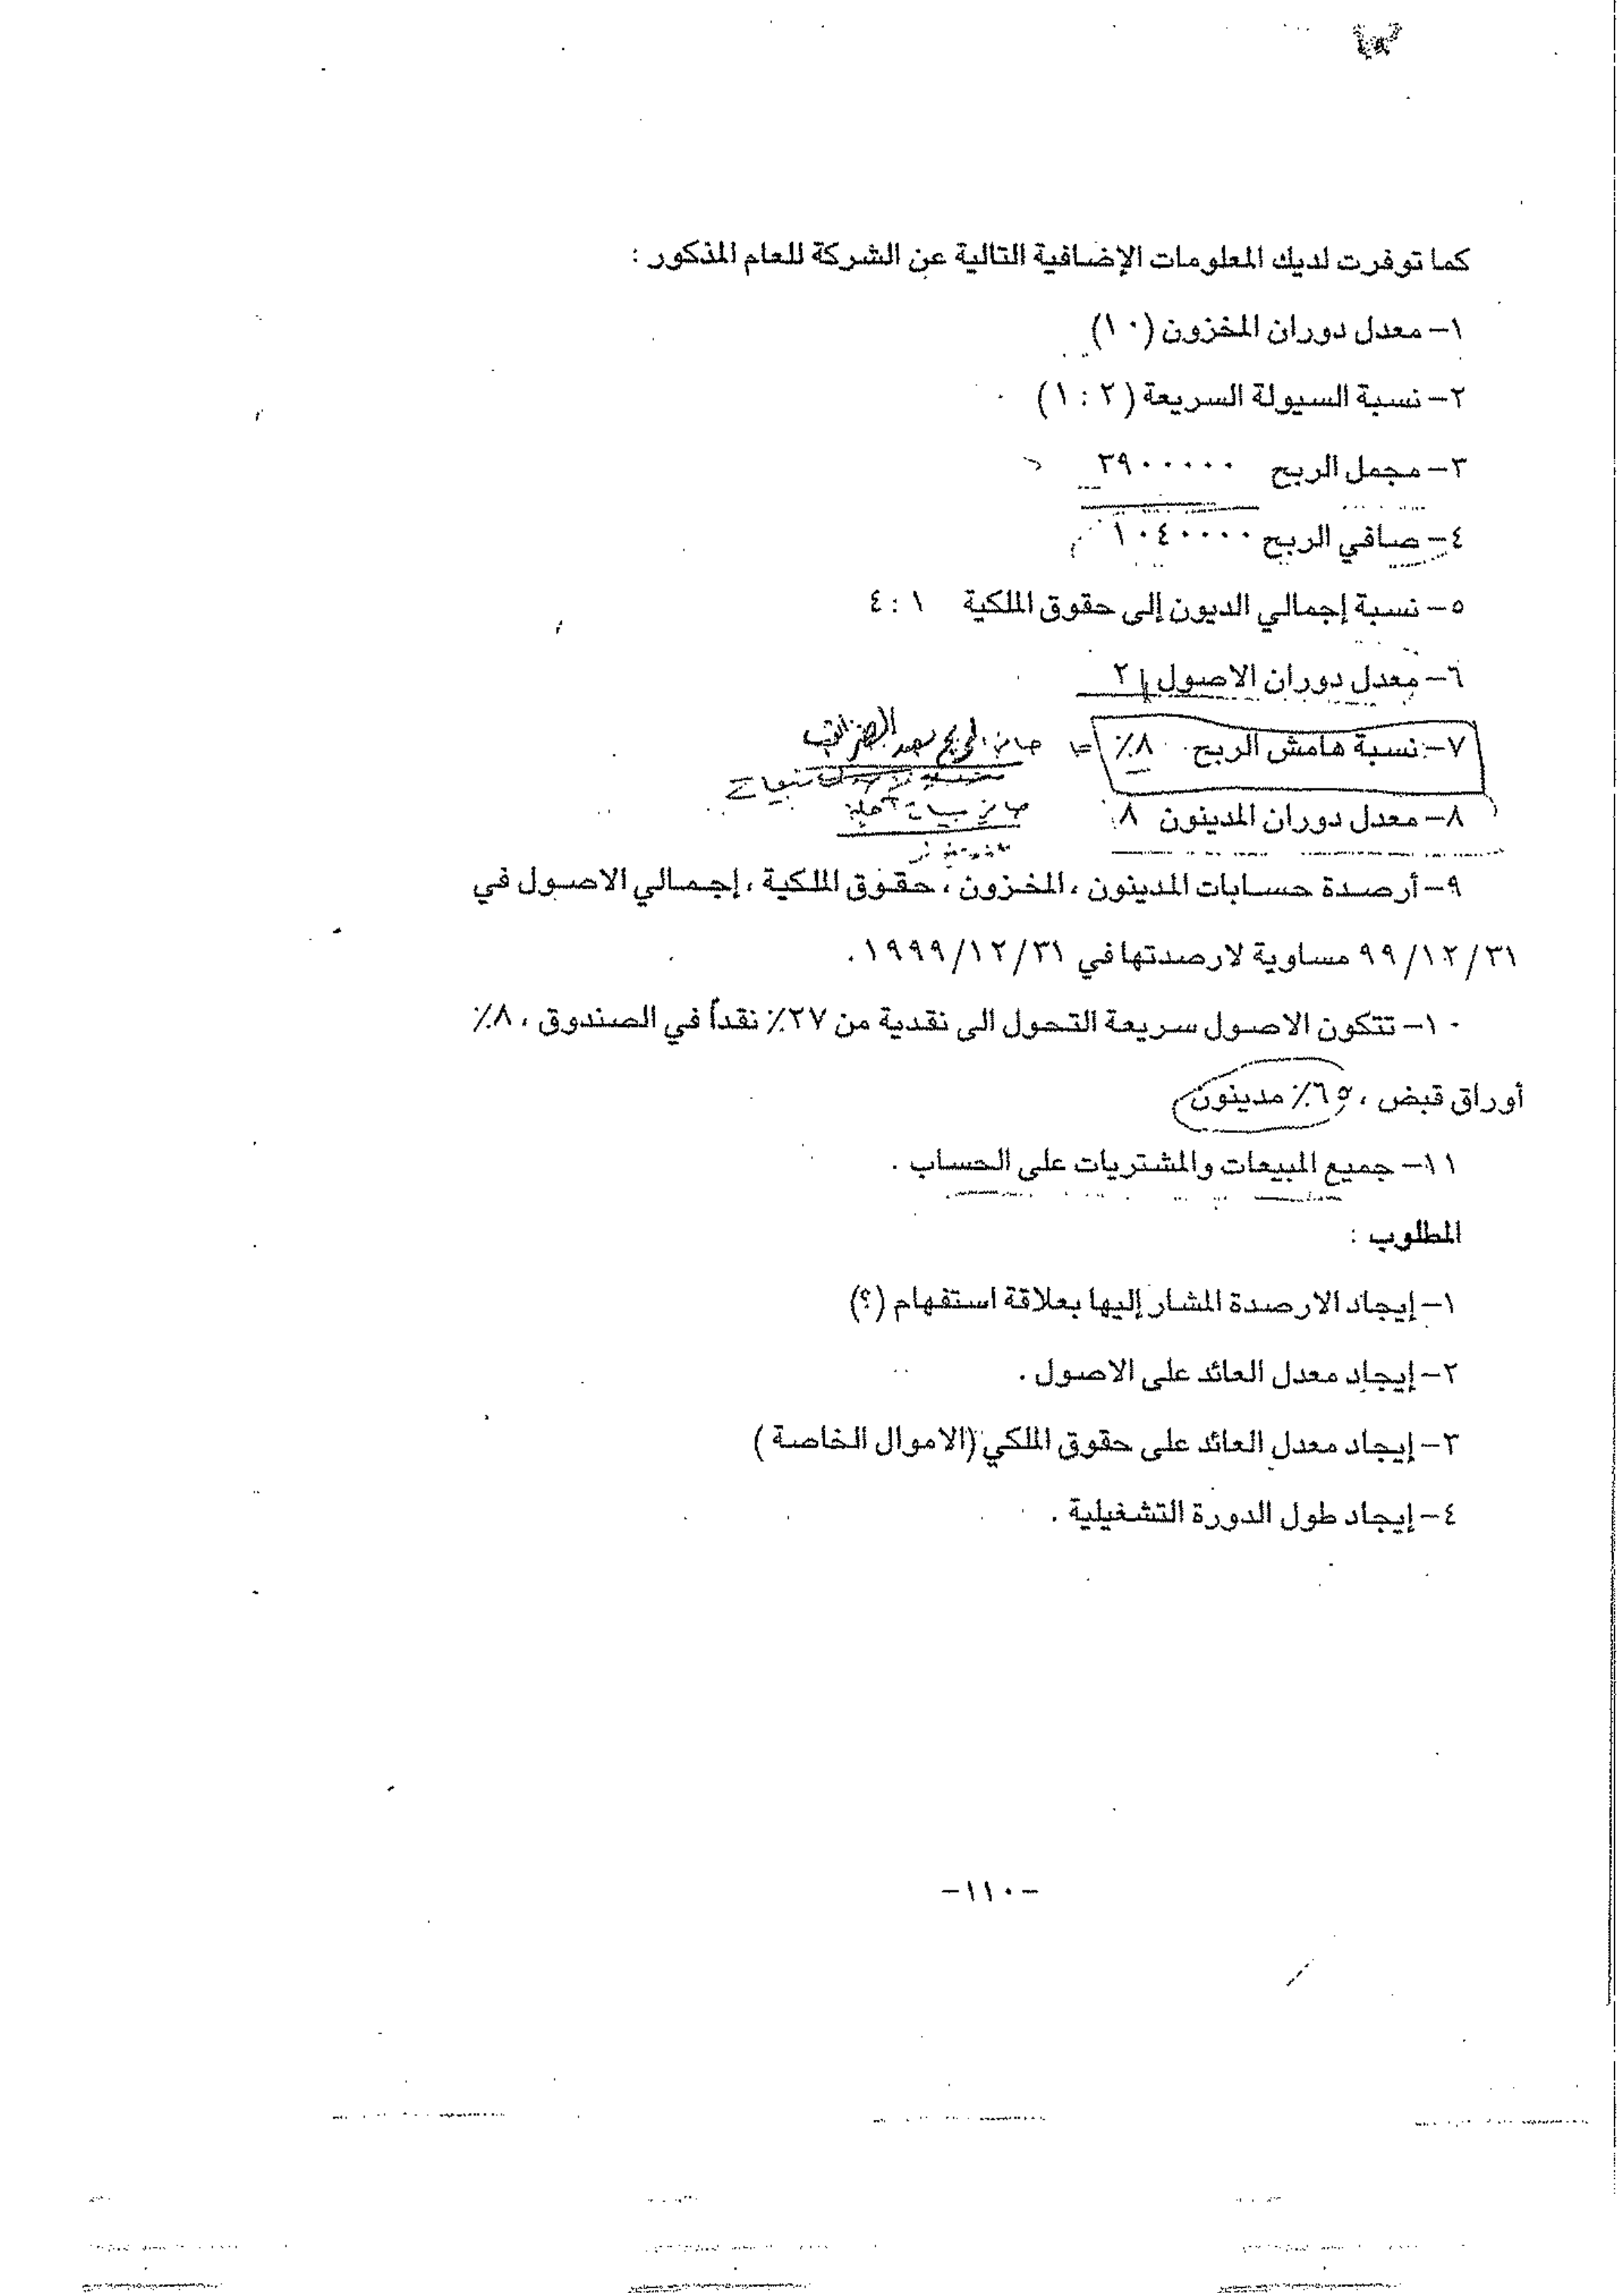 كما توفرت لديك المعلومات الإضافية التالية عن الشركة للعام المذكور :
١– معدل دوران المخزون (١٠)
٢– نسبة السيولة السريعة (٢ : ١)
٣– مجمل الربح ٣٩٠٠٠٠٠
٤– صافي الربح ١٠٤٠٠٠٠
٥– نسبة إجمالي الديون إلى حقوق الملكية ١ : ٤
٦– معدل دوران الاصول ٢
٧– نسبة هامش الربح ٨٪ =
٨– معدل دوران المدينون ٨
٩– أرصدة حسابات المدينون ، المخزون ، حقوق الملكية ، إجمالي الاصول في
٩٩/١٢/٣١ مساوية لارصدتها في ١٩٩٩/١٢/٣١ .
١٠– تتكون الاصول سريعة التحول الى نقدية من ٢٧٪ نقداً في الصندوق ، ٨٪
أوراق قبض ، ٦٥٪ مدينون
١١– جميع المبيعات والمشتريات على الحساب .
المطلوب :
١– إيجاد الارصدة المشار إليها بعلاقة استفهام (؟)
٢– إيجاد معدل العائد على الاصول .
٣– إيجاد معدل العائد على حقوق الملكي (الاموال الخاصة )
٤– إيجاد طول الدورة التشغيلية .
–١١٠–